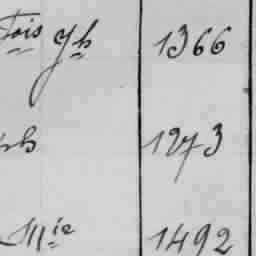 Fois Jh 1366
1273
Mie 1492